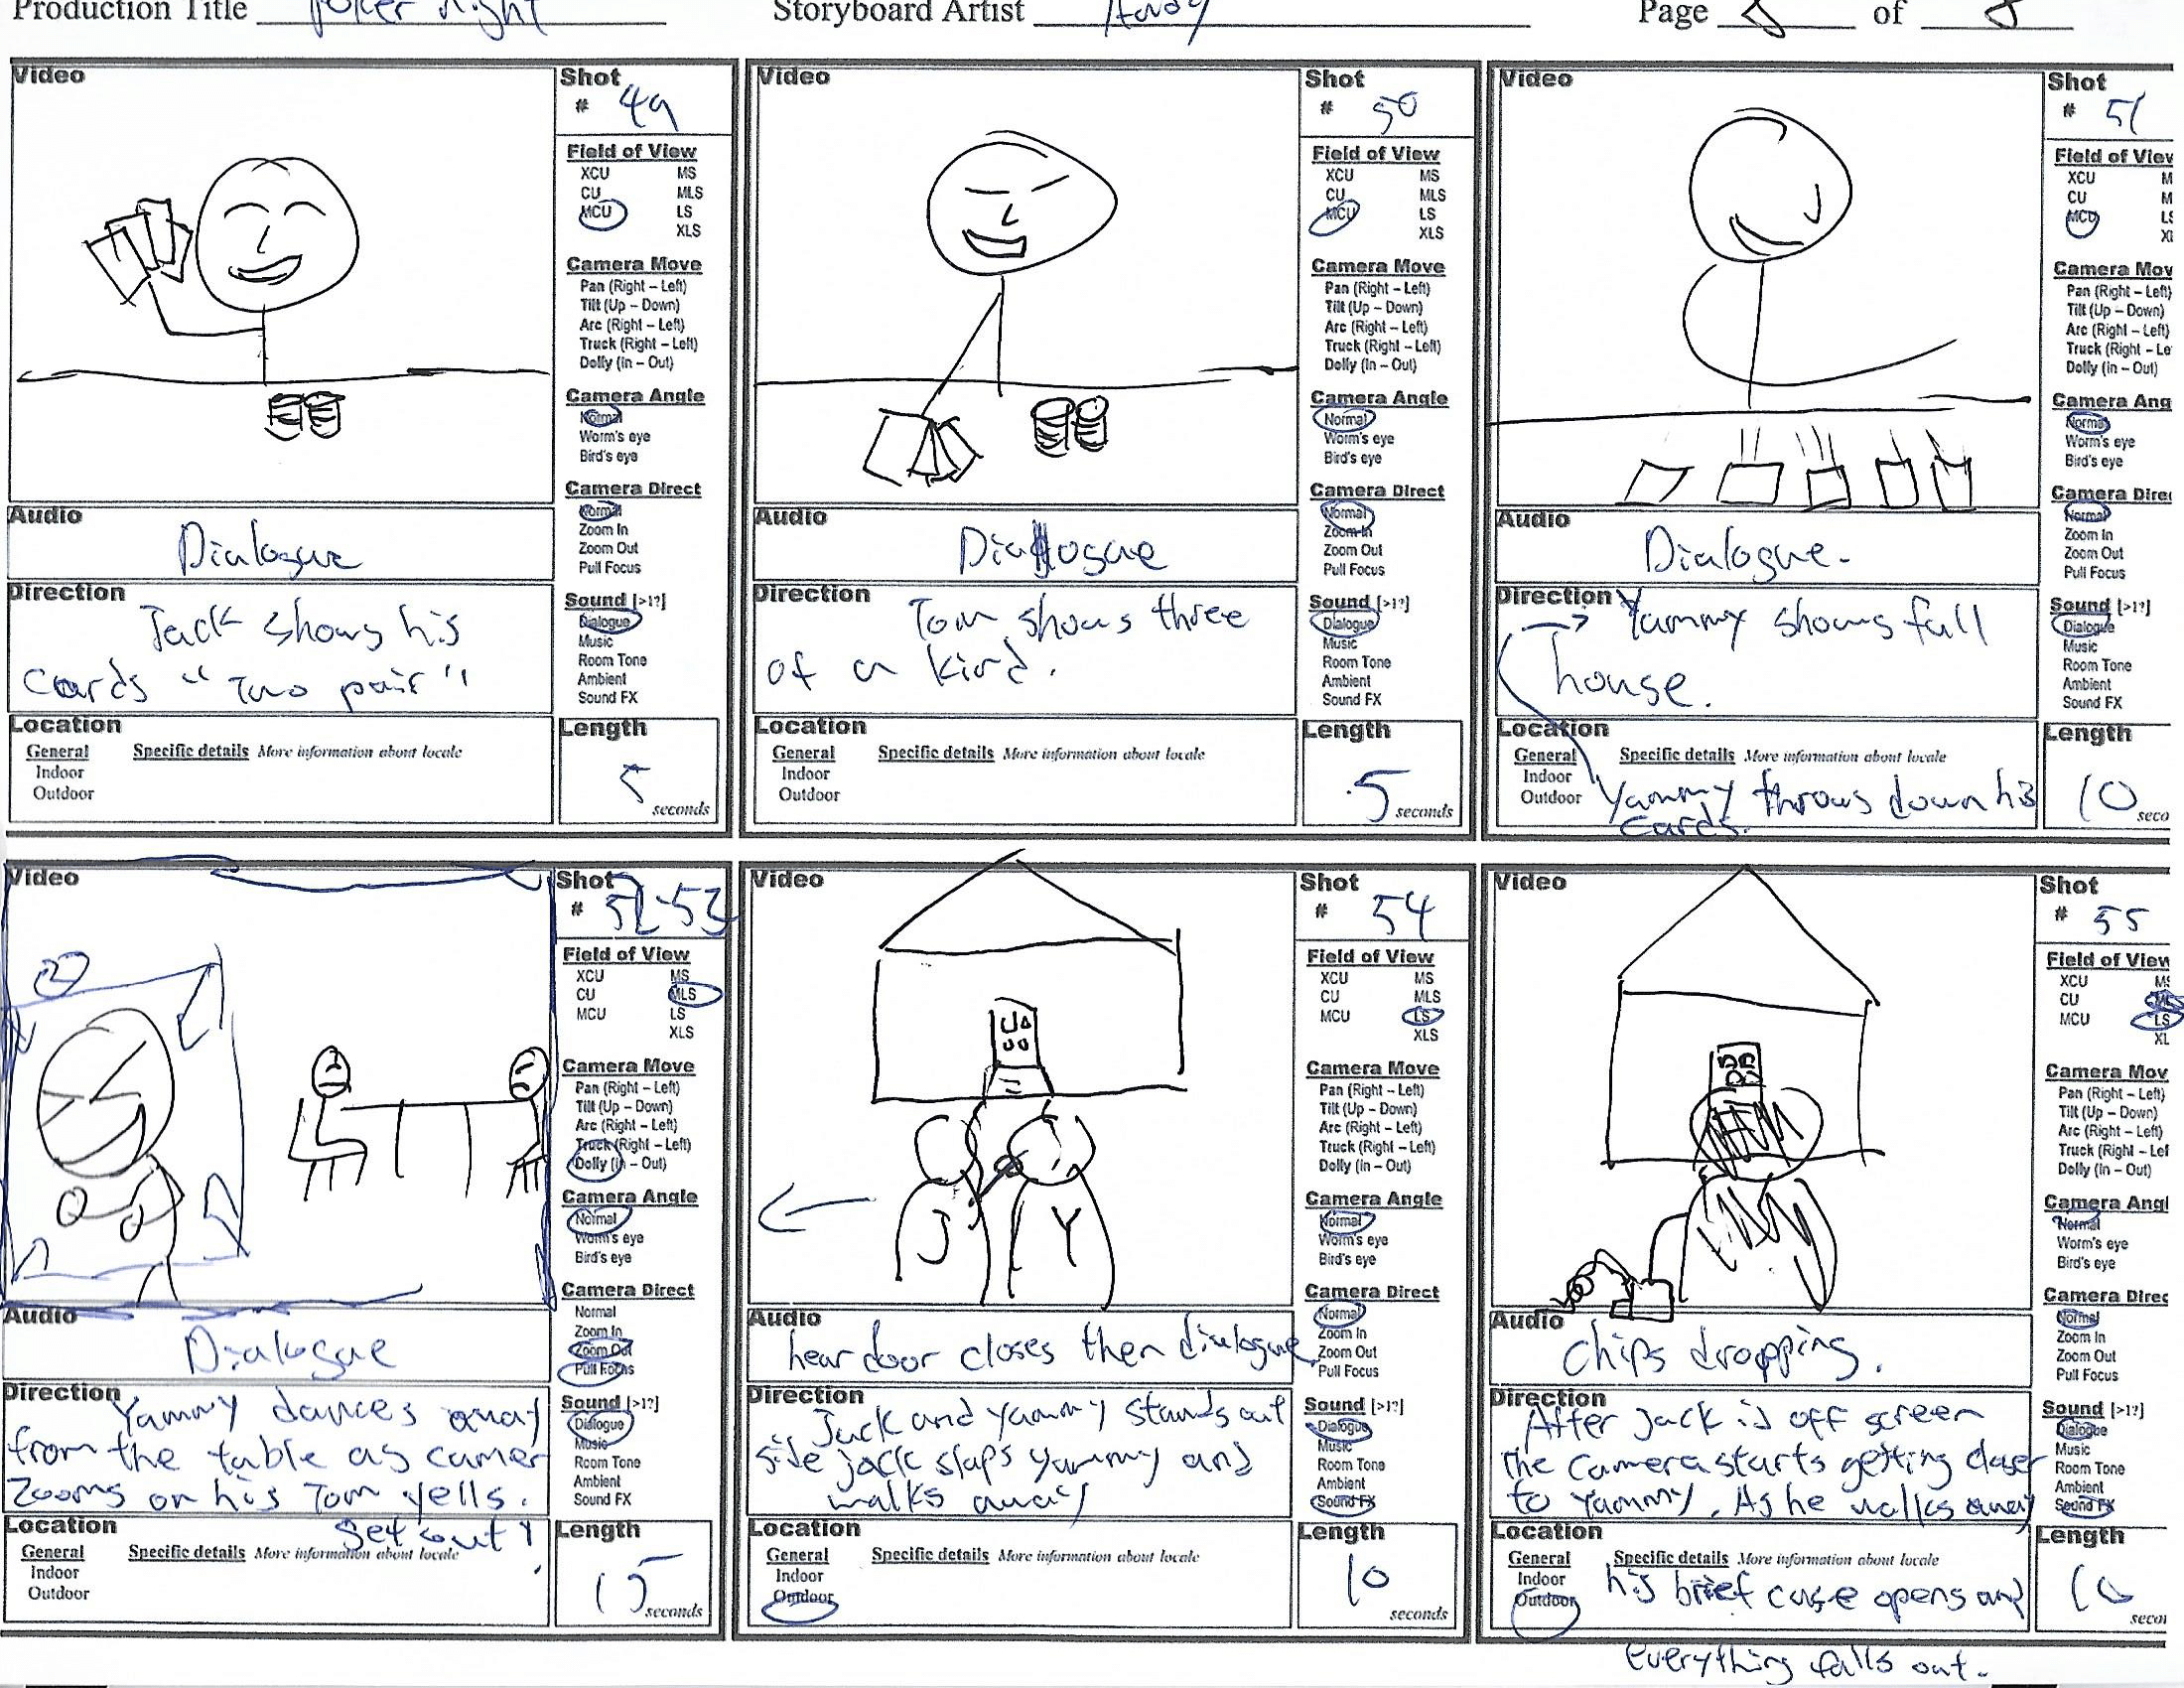 Production Title Poker Night Storyboard Artist Page 8 of 8
Video
Shot
# 49
Field of View
XCU MS
CU MLS
MCU LS
XLS
Camera Move
Pan (Right – Left)
Tilt (Up – Down)
Arc (Right – Left)
Truck (Right – Left)
Dolly (In – Out)
Camera Angle
Normal
Worm's eye
Bird's eye
Camera Direct
Normal
Zoom In
Zoom Out
Pull Focus
Audio
Dialogue
Direction
Jack shows his
cards "two pair"
Sound [>1?]
Dialogue
Music
Room Tone
Ambient
Sound FX
Location
General Specific details More information about locale
Indoor
Outdoor
Length
5 seconds
Video
Shot
# 50
Field of View
XCU MS
CU MLS
MCU LS
XLS
Camera Move
Pan (Right – Left)
Tilt (Up – Down)
Arc (Right – Left)
Truck (Right – Left)
Dolly (In – Out)
Camera Angle
Normal
Worm's eye
Bird's eye
Camera Direct
Normal
Zoom In
Zoom Out
Pull Focus
Audio
Dialogue
Direction
Tom shows three
of a kind.
Sound [>1?]
Dialogue
Music
Room Tone
Ambient
Sound FX
Location
General Specific details More information about locale
Indoor
Outdoor
Length
5 seconds
Video
Shot
# 51
Field of View
XCU M
CU M
MCU LS
XL
Camera Mov
Pan (Right – Left)
Tilt (Up – Down)
Arc (Right – Left)
Truck (Right – Le
Dolly (In – Out)
Camera Ang
Normal
Worm's eye
Bird's eye
Camera Direc
Normal
Zoom In
Zoom Out
Pull Focus
Audio
Dialogue.
Direction
Yammy shows full
house.
Sound [>1?]
Dialogue
Music
Room Tone
Ambient
Sound FX
Location
General Specific details More information about locale
Indoor
Outdoor
Yammy throws down his
cards.
Length
10 seco
Video
Shot
# 52-53
Field of View
XCU MS
CU MLS
MCU LS
XLS
Camera Move
Pan (Right – Left)
Tilt (Up – Down)
Arc (Right – Left)
Truck (Right – Left)
Dolly (In – Out)
Camera Angle
Normal
Worm's eye
Bird's eye
Camera Direct
Normal
Zoom In
Zoom Out
Pull Focus
Audio
Dialogue
Direction
Yammy dances away
from the table as camer
zooms on his Tom yells.
get out!
Sound [>1?]
Dialogue
Music
Room Tone
Ambient
Sound FX
Location
General Specific details More information about locale
Indoor
Outdoor
Length
15 seconds
Video
J Y
Shot
# 54
Field of View
XCU MS
CU MLS
MCU LS
XLS
Camera Move
Pan (Right – Left)
Tilt (Up – Down)
Arc (Right – Left)
Truck (Right – Left)
Dolly (In – Out)
Camera Angle
Normal
Worm's eye
Bird's eye
Camera Direct
Normal
Zoom In
Zoom Out
Pull Focus
Audio
hear door closes then dialogue.
Direction
Jack and Yammy stands out
side jack slaps yammy and
walks away
Sound [>1?]
Dialogue
Music
Room Tone
Ambient
Sound FX
Location
General Specific details More information about locale
Indoor
Outdoor
Length
10 seconds
Video
Shot
# 55
Field of View
XCU MS
CU
MCU LS
XL
Camera Mov
Pan (Right – Left)
Tilt (Up – Down)
Arc (Right – Left)
Truck (Right – Lef
Dolly (In – Out)
Camera Angl
Normal
Worm's eye
Bird's eye
Camera Direc
Normal
Zoom In
Zoom Out
Pull Focus
Audio
Chips dropping.
Direction
After Jack is off screen
the camera starts getting closer
to Yammy. As he walks away
Sound [>1?]
Dialogue
Music
Room Tone
Ambient
Sound FX
Location
General Specific details More information about locale
Indoor
Outdoor
his brief case opens and
everything falls out.
Length
10 secon